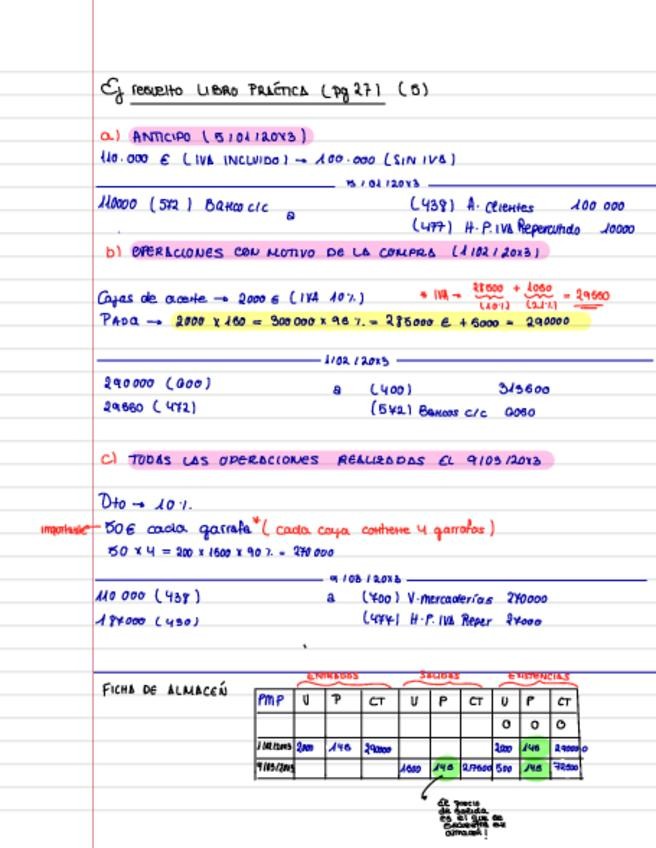 Ej resuelto LIBRO PRÁCTICA (pg 27) (5)
a) ANTICIPO (5/01/20X3)
110.000 € (IVA INCLUIDO) → 100.000 (SIN IVA)
5/01/20X3
110000 (572) Banco c/c a (438) A. Clientes 100 000
(477) H.P. IVA Repercutido 10000
b) OPERACIONES CON MOTIVO DE LA COMPRA (1/02/20X3)
Cajas de aceite → 2000 € (IVA 10%) * IVA → 28500 + 1050 = 29550
(10%) (21%)
PADA → 2000 x 150 = 300000 x 95% = 285000 € + 5000 = 290000
1/02/20X3
290000 (600) a (400) 313500
29550 (472) (572) Bancos c/c 6050
c) TODAS LAS OPERACIONES REALIZADAS EL 9/03/20X3
Dto → 10%
importante 50€ cada garrafa* (cada caja contiene 4 garrafas)
50 x 4 = 200 x 1500 x 90% = 270000
9/03/20X3
110 000 (438) a (700) V. mercaderías 270000
187000 (430) (477) H.P. IVA Reper 27000
FICHA DE ALMACÉN
ENTRADAS SALIDAS EXISTENCIAS
PMP U P CT U P CT U P CT
0 0 0
1/02/20X3 2000 145 290000 2000 145 290000
9/03/20X3 1500 145 217500 500 145 72500
el precio
de salida
es el que se
encuentra en
almacén!